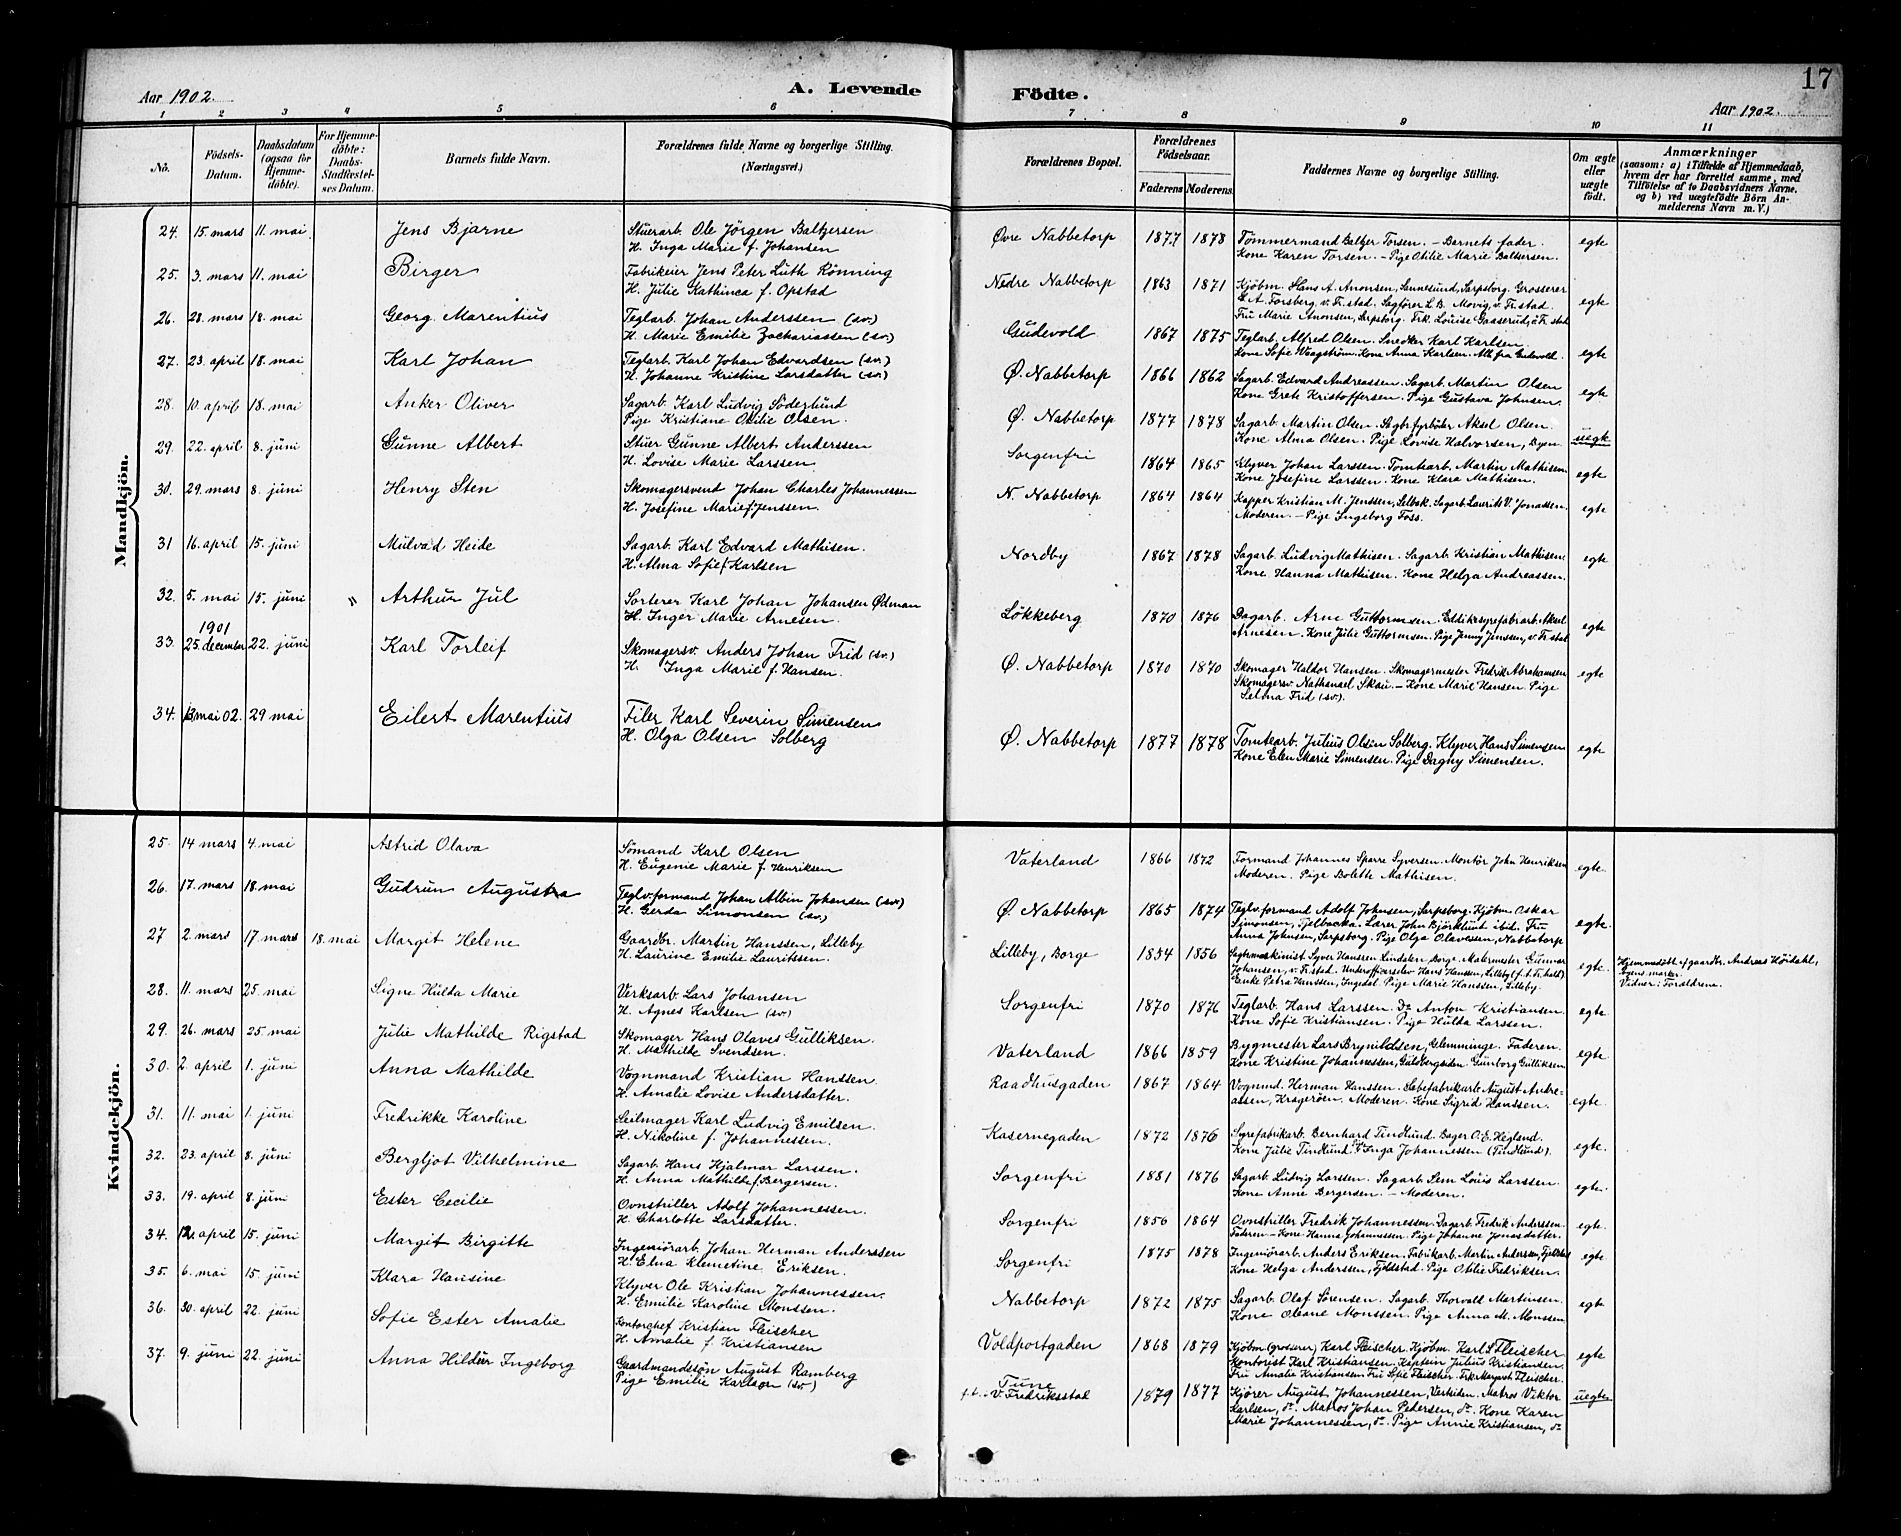 17
Aar 1902.
A. Levende Födte.
Aar 1902.
1 2 3 4 5 6 7 8 9 10 11
No. Födsels-Datum. Daabsdatum (ogsaa for Hjemme-döbte). For Hjemme-döbte: Daabs-Stadfæstel-ses Datum. Barnets fulde Navn. Forældrenes fulde Navne og borgerlige Stilling. (Næringsvei.) Forældrenes Bopæl. Forældrenes Födselsaar. Faderens Moderens. Faddernes Navne og borgerlige Stilling. Om ægte eller uægte födt. Anmærkninger (saasom: a) i Tilfælde af Hjemmedaab, hvem der har forrettet samme, med Tilföielse af to Daabsvidners Navne, og b) ved uægtefödte Börn An-melderens Navn m. V.)
Mandkjön.
24. 15. mars 11. mai Jens Bjarne Stuerarb. Ole Jörgen Baltzersen
H. Inga Marie f. Johansen Øvre Nabbetorp 1877 1878 Tömmermand Baltzer Torsen. – Barnets fader.
Kone Karen Torsen. – Pige Otilie Marie Baltsersen. egte
25. 3. mars 11. mai Birger Fabrikeier Jens Peter Luth Rönning
H. Julie Kathinca f. Opstad Nedre Nabbetorp 1863 1871 Kjöbm. Hans A. Anonsen, Sannesund, Sarpsborg. Grosserer
A. Forsberg v. Fr.stad. Sagförer L. B. Movig, v. Fr.stad.
Fru Marie Anonsen, Sarpsborg. Frk. Louise Gaaserud, v. Fr.stad egte
26. 28. mars 18. mai Georg Marentius Teglarb. Johan Anderssen (sv.)
H. Marie Emilie Zachariassen (sv.) Gudevold 1867 1875 Teglarb. Alfred Olsen. Snedker Karl Karlsen.
Kone Sofie Waagström. Kone Anna Karlsen. Alle fra Gudevold. egte
27. 23. april 18. mai Karl Johan Teglarb. Karl Johan Edvardsen (sv.)
H. Johanne Kristine Larsdatter (sv.) Ø. Nabbetorp 1866 1862 Sagarb. Edvard Andreassen. Sagarb. Martin Olsen
Kone Grete Kristoffersen. Pige Gustava Johnsen. egte
28. 10. april 18. mai Anker Oliver Sagarb. Karl Ludvig Söderlund
Pige Kristiane Otilie Olsen. Ø. Nabbetorp 1877 1878 Sagarb. Martin Olsen. Aksel Olsen.
Kone Alma Olsen. Pige Lovise Halvorsen, Byen uegte
29. 22. april 8. juni Gunne Albert Stuer Gunne Albert Anderssen
H. Lovise Marie Larssen Sorgenfri 1864 1865 Klyver Johan Larssen. Tomtearb. Martin Mathisen.
Kone Josefine Larssen. Kone Klara Mathisen. egte
30. 29. mars 8. juni Henry Sten Skomagersvend Johan Charles Johannessen
H. Josefine Marie f. Jenssen. N. Nabbetorp 1864 1864 Kapper Kristian M. Jenssen, Selbak. Sagarb. Laurits V. Jonassen.
Moderen. – Pige Ingeborg Foss. egte
31 16. april 15. juni Milvad Heide Sagarb. Karl Edvard Mathisen.
H. Alma Sofie f. Karlsen Nordby 1867 1878 Sagarb. Ludvig Mathisen. Sagarb. Kristian Mathisen.
Kone Hanna Mathisen. Kone Helga Andreassen. egte
32. 5. mai 15. juni " Arthur Jul Sorterer Karl Johan Johansen Ødman
H. Inger Marie Arnesen. Lökkeberg 1870 1876 Dagarb. Arne Guttormsen. Eddiksyrefabrarb. Aksel
Arnesen. Kone Julie Guttormsen. Pige Jenny Jenssen, v. Fr.stad egte
33. 1901 25. december 22. juni Karl Torleif Skomagersv. Anders Johan Frid (sv.)
H. Inga Marie f. Hansen. Ø. Nabbetorp 1870 1870 Skomager Haldor Hansen. Skomagermester Fredrik Abrahamsen
Skomagersv. Nathanael Skau. – Kone Marie Hansen. Pige
Selma Frid (sv.) egte
34. 13 mai 02. 29 mai Eilert Marentius Filer Karl Severin Simensen
H. Olga Olsen Solberg Ø. Nabbetorp 1877 1878 Tomtearb. Julius Olsen Solberg. Klyver Hans Simensen
Kone Elen Marie Simensen. Pige Dagny Simensen. egte
Kvindekjön.
25. 14 mars 4. mai Astrid Olava Sömand Karl Olsen
H. Eugenie Marie f. Henriksen Vaterland 1866 1872 Formand Johannes Sparre Syversen. Montör John Henriksen
Moderen. Pige Bolette Mathisen. egte.
26. 17. mars 18. mai Gudrun Augusta Teglv.formand Johan Albin Johansen (sv.)
H. Gerda Simonsen (sv.) Ø. Nabbetorp 1865 1874 Teglv.formand Adolf Johnsen, Sarpsborg. Kjöbm. Oskar
Simonsen, Fjelbacka. Lærer John Björklund ibid. Fru
Anna Johnsen, Sarpsborg. Pige Olga Olavessen, Nabbetorp egte.
27 2. mars 17 mars 18. mai Margit Helene Gaardbr. Martin Hanssen, Lilleby
H. Laurine Emilie Lauritssen. Lilleby, Borge 1854 1856 Sagbmaskinist Syver Hanssen Lindalen Borge. Malermester Gunnar
Johansen, v. Fr.stad. Underofficerselev Hans Hanssen, Lilleby (f. t. Fr.hald)
Enke Petra Hanssen, Ingedal. Pige Marie Hanssen, Lilleby. egte. Hjemmedöbt af gaardbr. Andreas Höidahl,
Byens marker.
Vidner: Forældrene.
28. 11. mars 25. mai Signe Hulda Marie Verksarb. Lars Johansen
H. Agnes Karlsen (sv.) Sorgenfri 1870 1876 Teglarb. Hans Larssen. Do Anton Kristiansen
Kone Sofie Kristiansen. Pige Hulda Larssen. egte.
29. 26. mars 25. mai Julie Mathilde Rigstad Skomager Hans Olaves Gulliksen.
H. Mathilde Svendsen. Vaterland 1866 1859 Bygmester Lars Brynildsen, Glemminge. Faderen.
Kone Kristine Johannessen, Guldbergsiden Gunborg Gulliksen egte.
30. 2. april 1. juni Anna Mathilde Vognmand Kristian Hanssen.
H. Amalie Lovise Andersdatter. Raadhusgaden 1867 1864 Vognmd. Herman Hanssen. Sæbefabrikarb. August Andre-
assen, Kragerøen. Moderen. Kone Sigrid Hanssen. egte.
31. 11. mai 1. juni Fredrikke Karoline Seilmager Karl Ludvig Emilsen.
H. Nikoline f. Johannessen. Kasernegaden 1872 1876 Syrefabrikarb. Bernhard Tindlund. Bager O. E. Hegland.
Kone Julie Tindlund. Inga Johannessen (Tindlund). egte.
32. 23. april 8. juni Bergljot Vilhelmine Sagarb. Hans Hjalmar Larssen.
H. Anna Mathilde f. Bergersen. Sorgenfri 1881 1876 Sagarb. Ludvig Larssen. Sagarb. Lem Louis Larssen.
Kone Anne Bergersen. – Moderen. egte.
33. 19. april 8. juni Ester Cecilie Ovnstriller Adolf Johannessen.
H. Charlotte Larsdatter. Sorgenfri 1856 1864 Ovnstriller Fredrik Johannessen. Dagarb. Fredrik Anderssen
Faderen – Kone Hanna Johannessen. Pige Johanne Jonasdatter. egte.
34. 12. april 15. juni Margit Birgitte Ingeniörarb. Johan Herman Anderssen
H. Elna Klemetine Eriksen. Sorgenfri 1875 1878 Ingeniörarb. Anders Eriksen. Fabrikarb. Martin Anderssen, Fjeldstad
Kone Helga Anderssen, Fjeldstad. Pige Otilie Fredriksen. egte
35. 6. mai 15. juni Klara Hansine Klyver Ole Kristian Johannessen.
H. Emilie Karoline Monssen. Nabbetorp 1872 1875 Sagarb. Olaf Sörensen. Sagarb. Thorvall Martinsen.
Kone Oleane Monssen. Pige Anna M. Monssen egte
36. 30. april 22. juni Sofie Ester Amalie Kontorchef Kristian Fleischer
H. Amalie f. Kristiansen Voldportgaden 1868 1879 Kjöbm (grosserer) Karl Fleischer. Kjöbm. Karl S. Fleischer
Kontorist Karl Kristiansen. Kaptein Julius Kristiansen.
Fru Amalie Kristiansen Fru Sofie Fleischer. Frk. Margareth Fleischer. egte
37. 9. juni 22. juni Anna Hildur Ingeborg Gaardmandssön August Ramberg
Pige Emilie Karlson (sv.) Tune
f.t. v. Fredriksstad 1879 1877 Kjörer August Johannessen, Verksiden. Matros Viktor
Karlsen, do. Matros Johan Pedersen, do. Kone Karen
Marie Johannessen, do. Pige Annie Kristiansen, do uegte